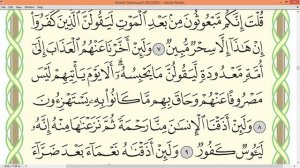 قُلْتَ إِنَّكُم مَّبْعُوثُونَ مِنۢ بَعْدِ ٱلْمَوْتِ لَيَقُولَنَّ ٱلَّذِينَ كَفَرُوٓا۟
إِنْ هَـٰذَآ إِلَّا سِحْرٌ مُّبِينٌ ٧ وَلَئِنْ أَخَّرْنَا عَنْهُمُ ٱلْعَذَابَ إِلَىٰٓ
أُمَّةٍ مَّعْدُودَةٍ لَّيَقُولُنَّ مَا يَحْبِسُهُۥٓ ۗ أَلَا يَوْمَ يَأْتِيهِمْ لَيْسَ
مَصْرُوفًا عَنْهُمْ وَحَاقَ بِهِم مَّا كَانُوا۟ بِهِۦ يَسْتَهْزِءُونَ
٨ وَلَئِنْ أَذَقْنَا ٱلْإِنسَـٰنَ مِنَّا رَحْمَةً ثُمَّ نَزَعْنَـٰهَا مِنْهُ إِنَّهُۥ
لَيَـُٔوسٌ كَفُورٌ ٩ وَلَئِنْ أَذَقْنَـٰهُ نَعْمَآءَ بَعْدَ ضَرَّآءَ